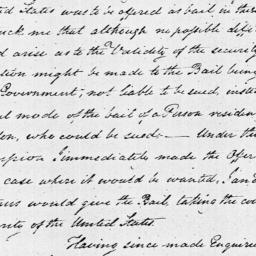 ted States was to be offered as bail in the
uck me that although no possible diffi
d arise as to the Validity of the security
tion might be made to the Bail being
Government, not liable to be sued, inste
l mode of the bail of a Person residen
on, who could be sued — Under th
mpression I immediately made the Offer
case where it would be wanted, I and
us would give the Bail, taking the cou
rity of the United States.
Having since made Enquire